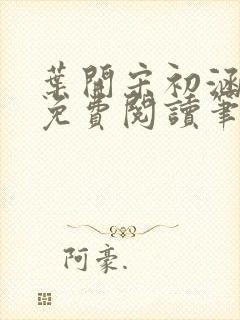 葉開宋初涵
免費閱讀筆
阿豪.